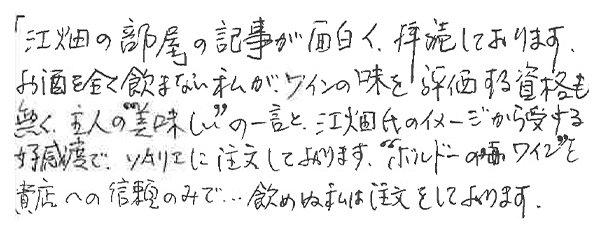 「江畑の部屋の記事が面白く、拝読しております。
お酒を全く飲まない私が、ワインの味を評価する資格も
無く、主人の“美味しい”の一言と、江畑氏のイメージから受ける
好感度で、ソムリエに注文しております。“ボルドーのワイン”を
貴店への信頼のみで…飲めぬ私は注文をしております。